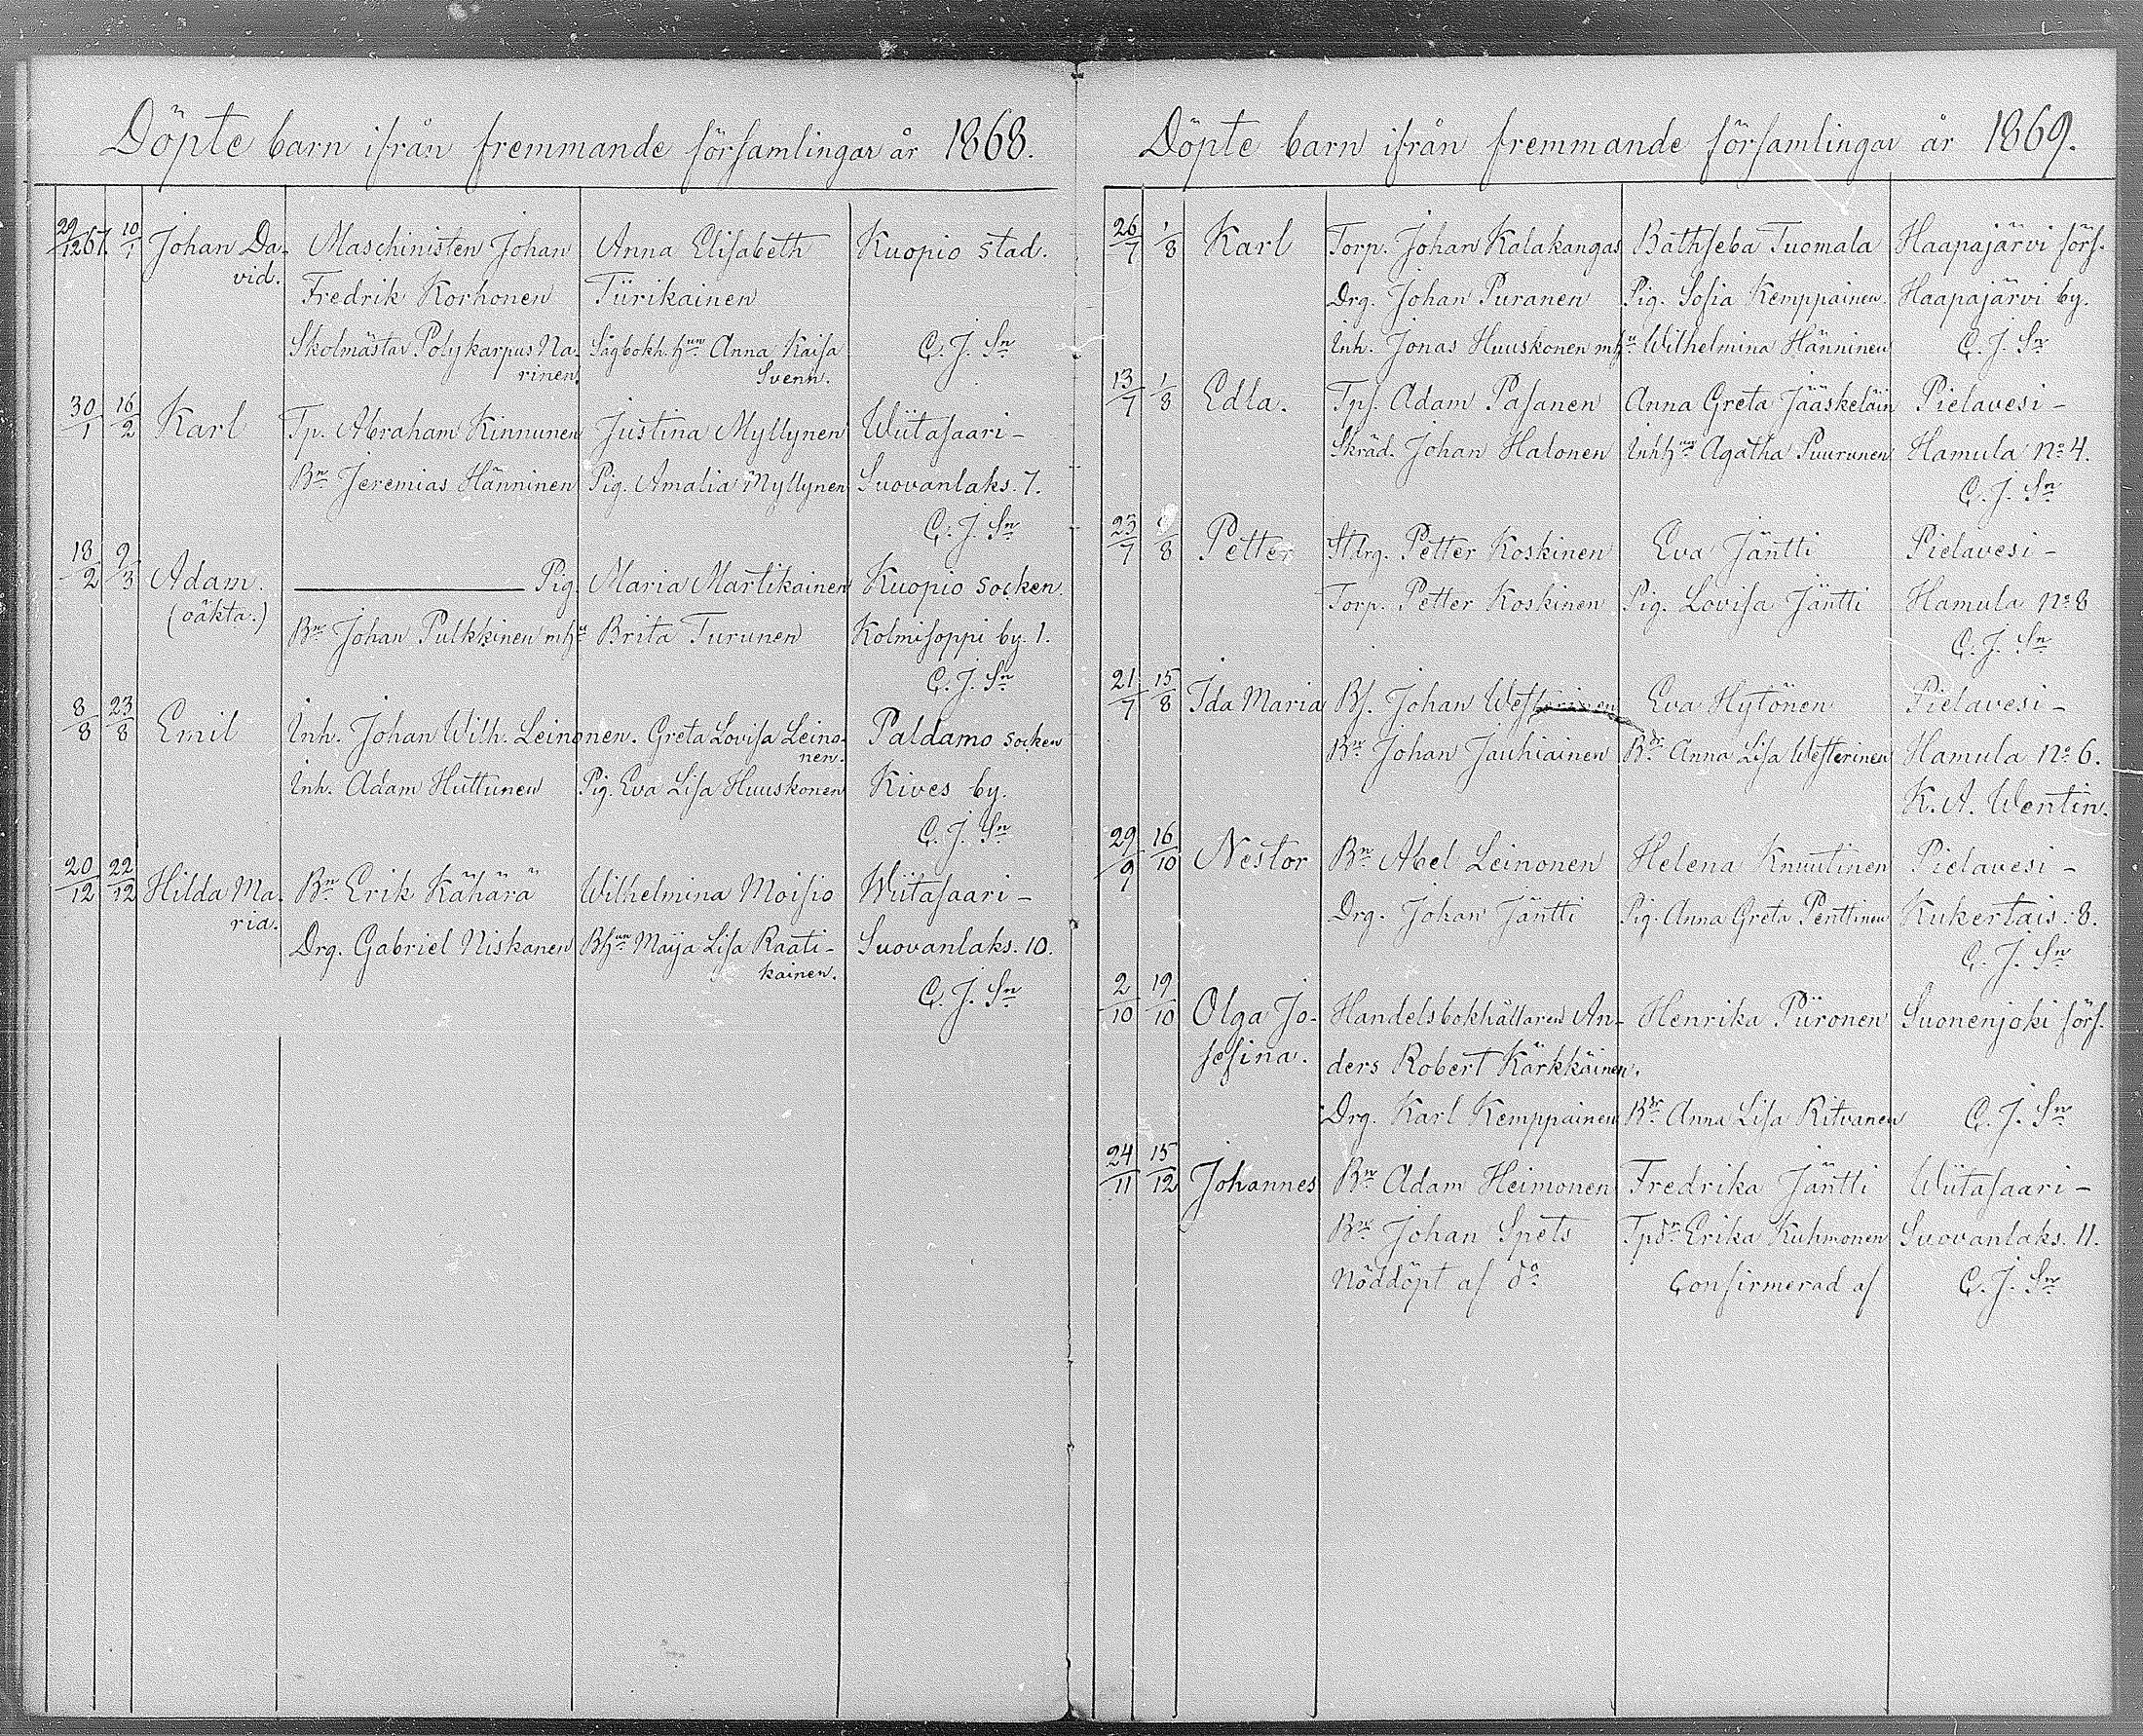 Döpte barn ifrån fremmande församlingar år 1868.
29/12 67. 10/1 Johan Da- Maschinisten Johan Anna Elisabeth Kuopio stad.
vid. Fredrik Korhonen Tiirikainen
Skolmästar Polykarpus Na- Sågbokh.hun Anna Kaisa C. J. Sn
rinen. Svenn.
30/1 16/2 Karl Tp. Abraham Kinnunen Justina Myllynen Wiitasaari-
Bn Jeremias Hänninen Pig. Amalia Myllynen Suovanlaks. 7.
C. J. Sn
18/2 9/3 Adam. ——— Pig. Maria Martikainen Kuopio socken.
(oäkta.) Bn Johan Pulkkinen mhu Brita Turunen Kolmisoppi by. 1.
C. J. Sn
8/8 23/8 Emil Inh. Johan Wilh. Leinonen. Greta Lovisa Leino- Paldamo socken
nen.
Inh. Adam Huttunen Pig. Eva Lisa Huuskonen Kives by.
C. J. Sn
20/12 22/12 Hilda Ma- Bn Erik Kähärä Wilhelmina Moisio Wiitasaari-
ria. Drg. Gabriel Niskanen Bhun Maija Lisa Raati- Suovanlaks. 10.
kainen. C. J. Sn
Döpte barn ifrån fremmande församlingar år 1869.
26/7 1/8 Karl Torp. Johan Kalakangas Bathseba Tuomala Haapajärvi förs.
Drg. Johan Puranen Pig. Sofia Kemppainen. Haapajärvi by.
Inh. Jonas Huuskonen mhu Wilhelmina Hänninen C. J. Sn
13/7 1/8 Edla. Tps. Adam Pasanen Anna Greta Jääskeläin Pielavesi-
Skräd. Johan Halonen Inhhun Agatha Puurunen Hamula No 4.
C. J. Sn
23/7 /8 Petter Stdrg. Petter Koskinen Eva Jäntti Pielavesi-
Torp. Petter Koskinen Pig. Lovisa Jäntti Hamula No 8
C. J. Sn
21/7 15/8 Ida Maria Bs. Johan Westerinen Eva Hytönen Pielavesi-
Bn Johan Jauhiainen Bdr Anna Lisa Westerinen Hamula No 6.
K. A. Wentin.
29/9 16/10 Nestor Bn Abel Leinonen Helena Knuutinen Pielavesi-
Drg. Johan Jäntti Pig. Anna Greta Penttinen Kukertais: 8.
C. J. Sn
2/10 19/10 Olga Jo- Handelsbokhållaren An- Henrika Piironen Suonenjoki förs.
sefina. ders Robert Kärkkäinen.
Drg. Karl Kemppainen Bdr Anna Lisa Ritvanen C. J. Sn
24/11 15/12 Johannes Bn Adam Heimonen Fredrika Jäntti Wiitasaari-
Bn Johan Spets Tpdr Erika Kuhmonen Suovanlaks. 11.
Nöddöpt af do Confirmerad af C. J. Sn